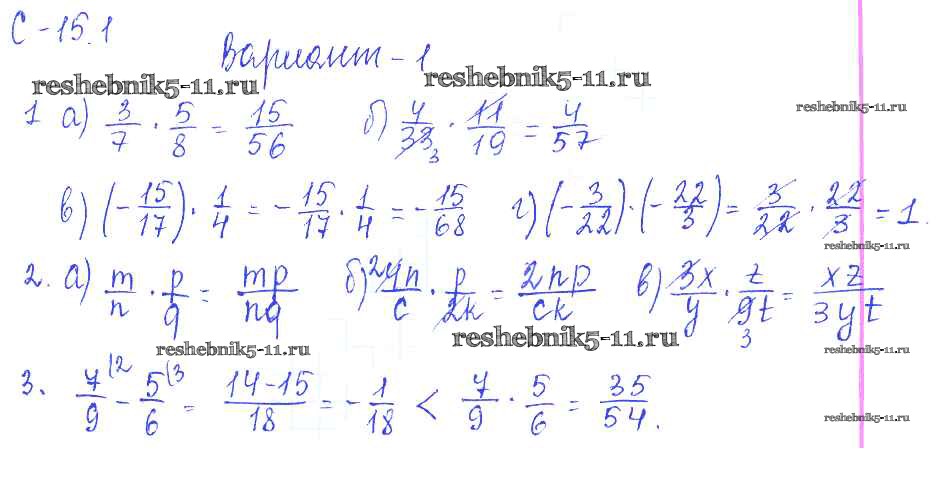 С-15.1
Вариант-1
reshebnik5-11.ru reshebnik5-11.ru
reshebnik5-11.ru
1 а) 3/7 · 5/8 = 15/56 б) 4/33 3 · 11/19 = 4/57
в) (-15/17) · 1/4 = -15/17 · 1/4 = -15/68 г) (-3/22) · (-22/3) = 3/22 · 22/3 = 1.
reshebnik5-11.ru
2. а) m/n · p/q = mp/nq б) 2 4n/c · p/2k = 2np/ck в) 3x/y · z/9t 3 = xz/3yt
reshebnik5-11.ru reshebnik5-11.ru reshebnik5-11.ru
3. 7/9 (2 - 5/6 (3 = 14-15/18 = -1/18 < 7/9 · 5/6 = 35/54.
reshebnik5-11.ru